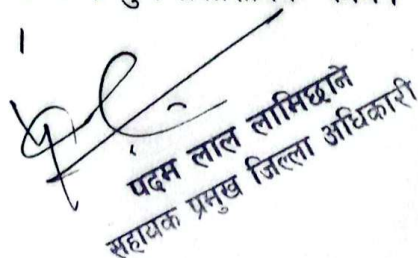 ।
पदम लाल लामिछाने
सहायक प्रमुख जिल्ला अधिकारी